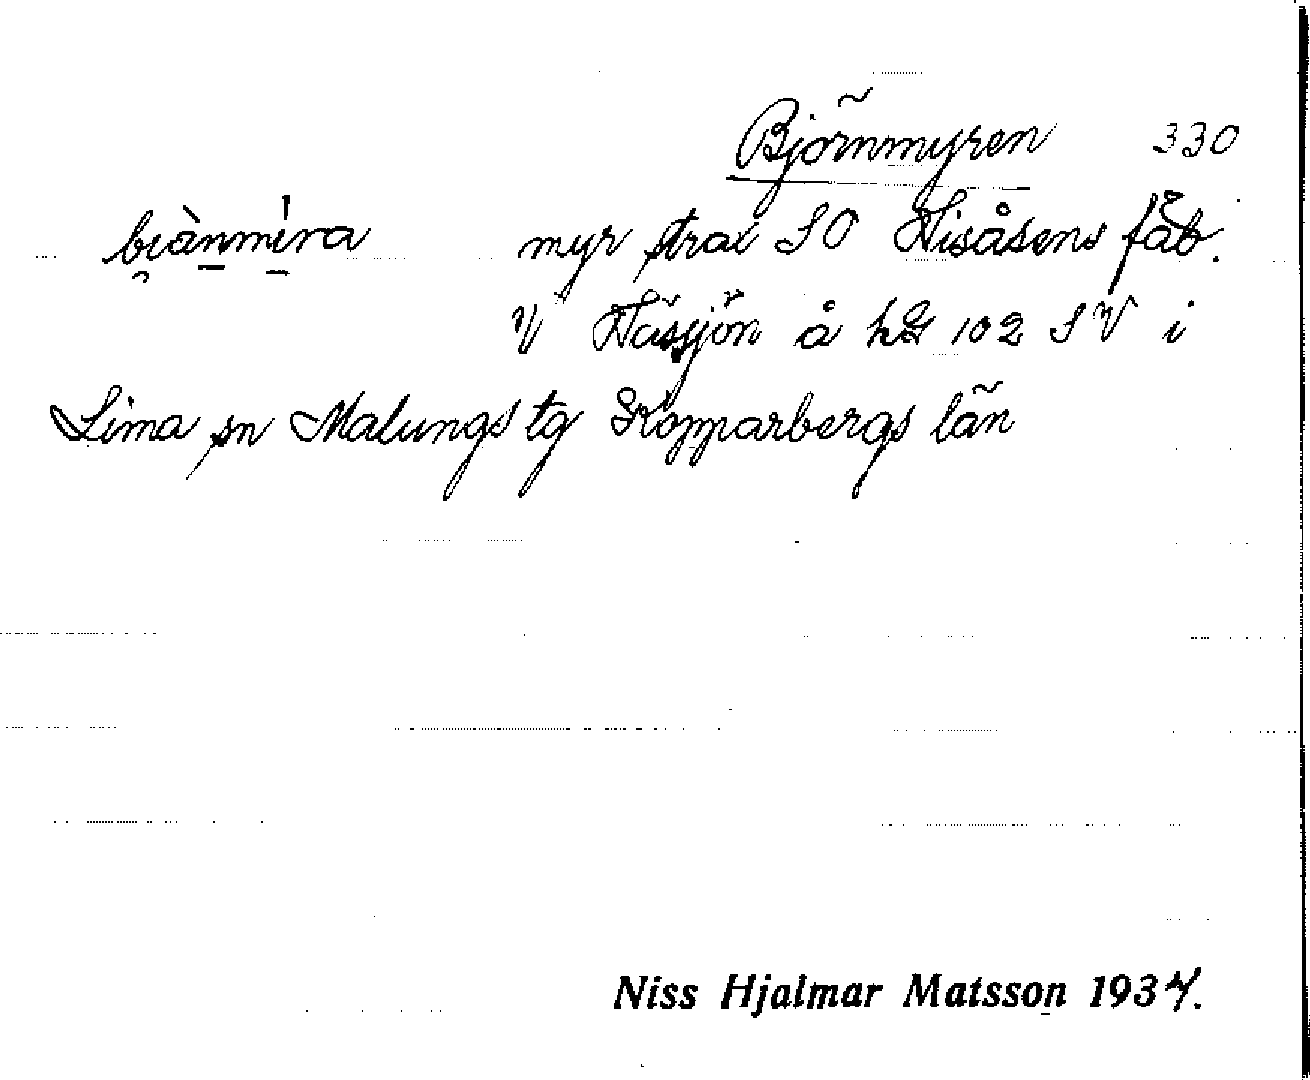 Björnmyren 330
myr strax SO Tisåsens fäb.
V Tåsjön å hG 102 SV i
Lima sn Malungs tg Kopparbergs län
Niss Hjalmar Matsson 1934.